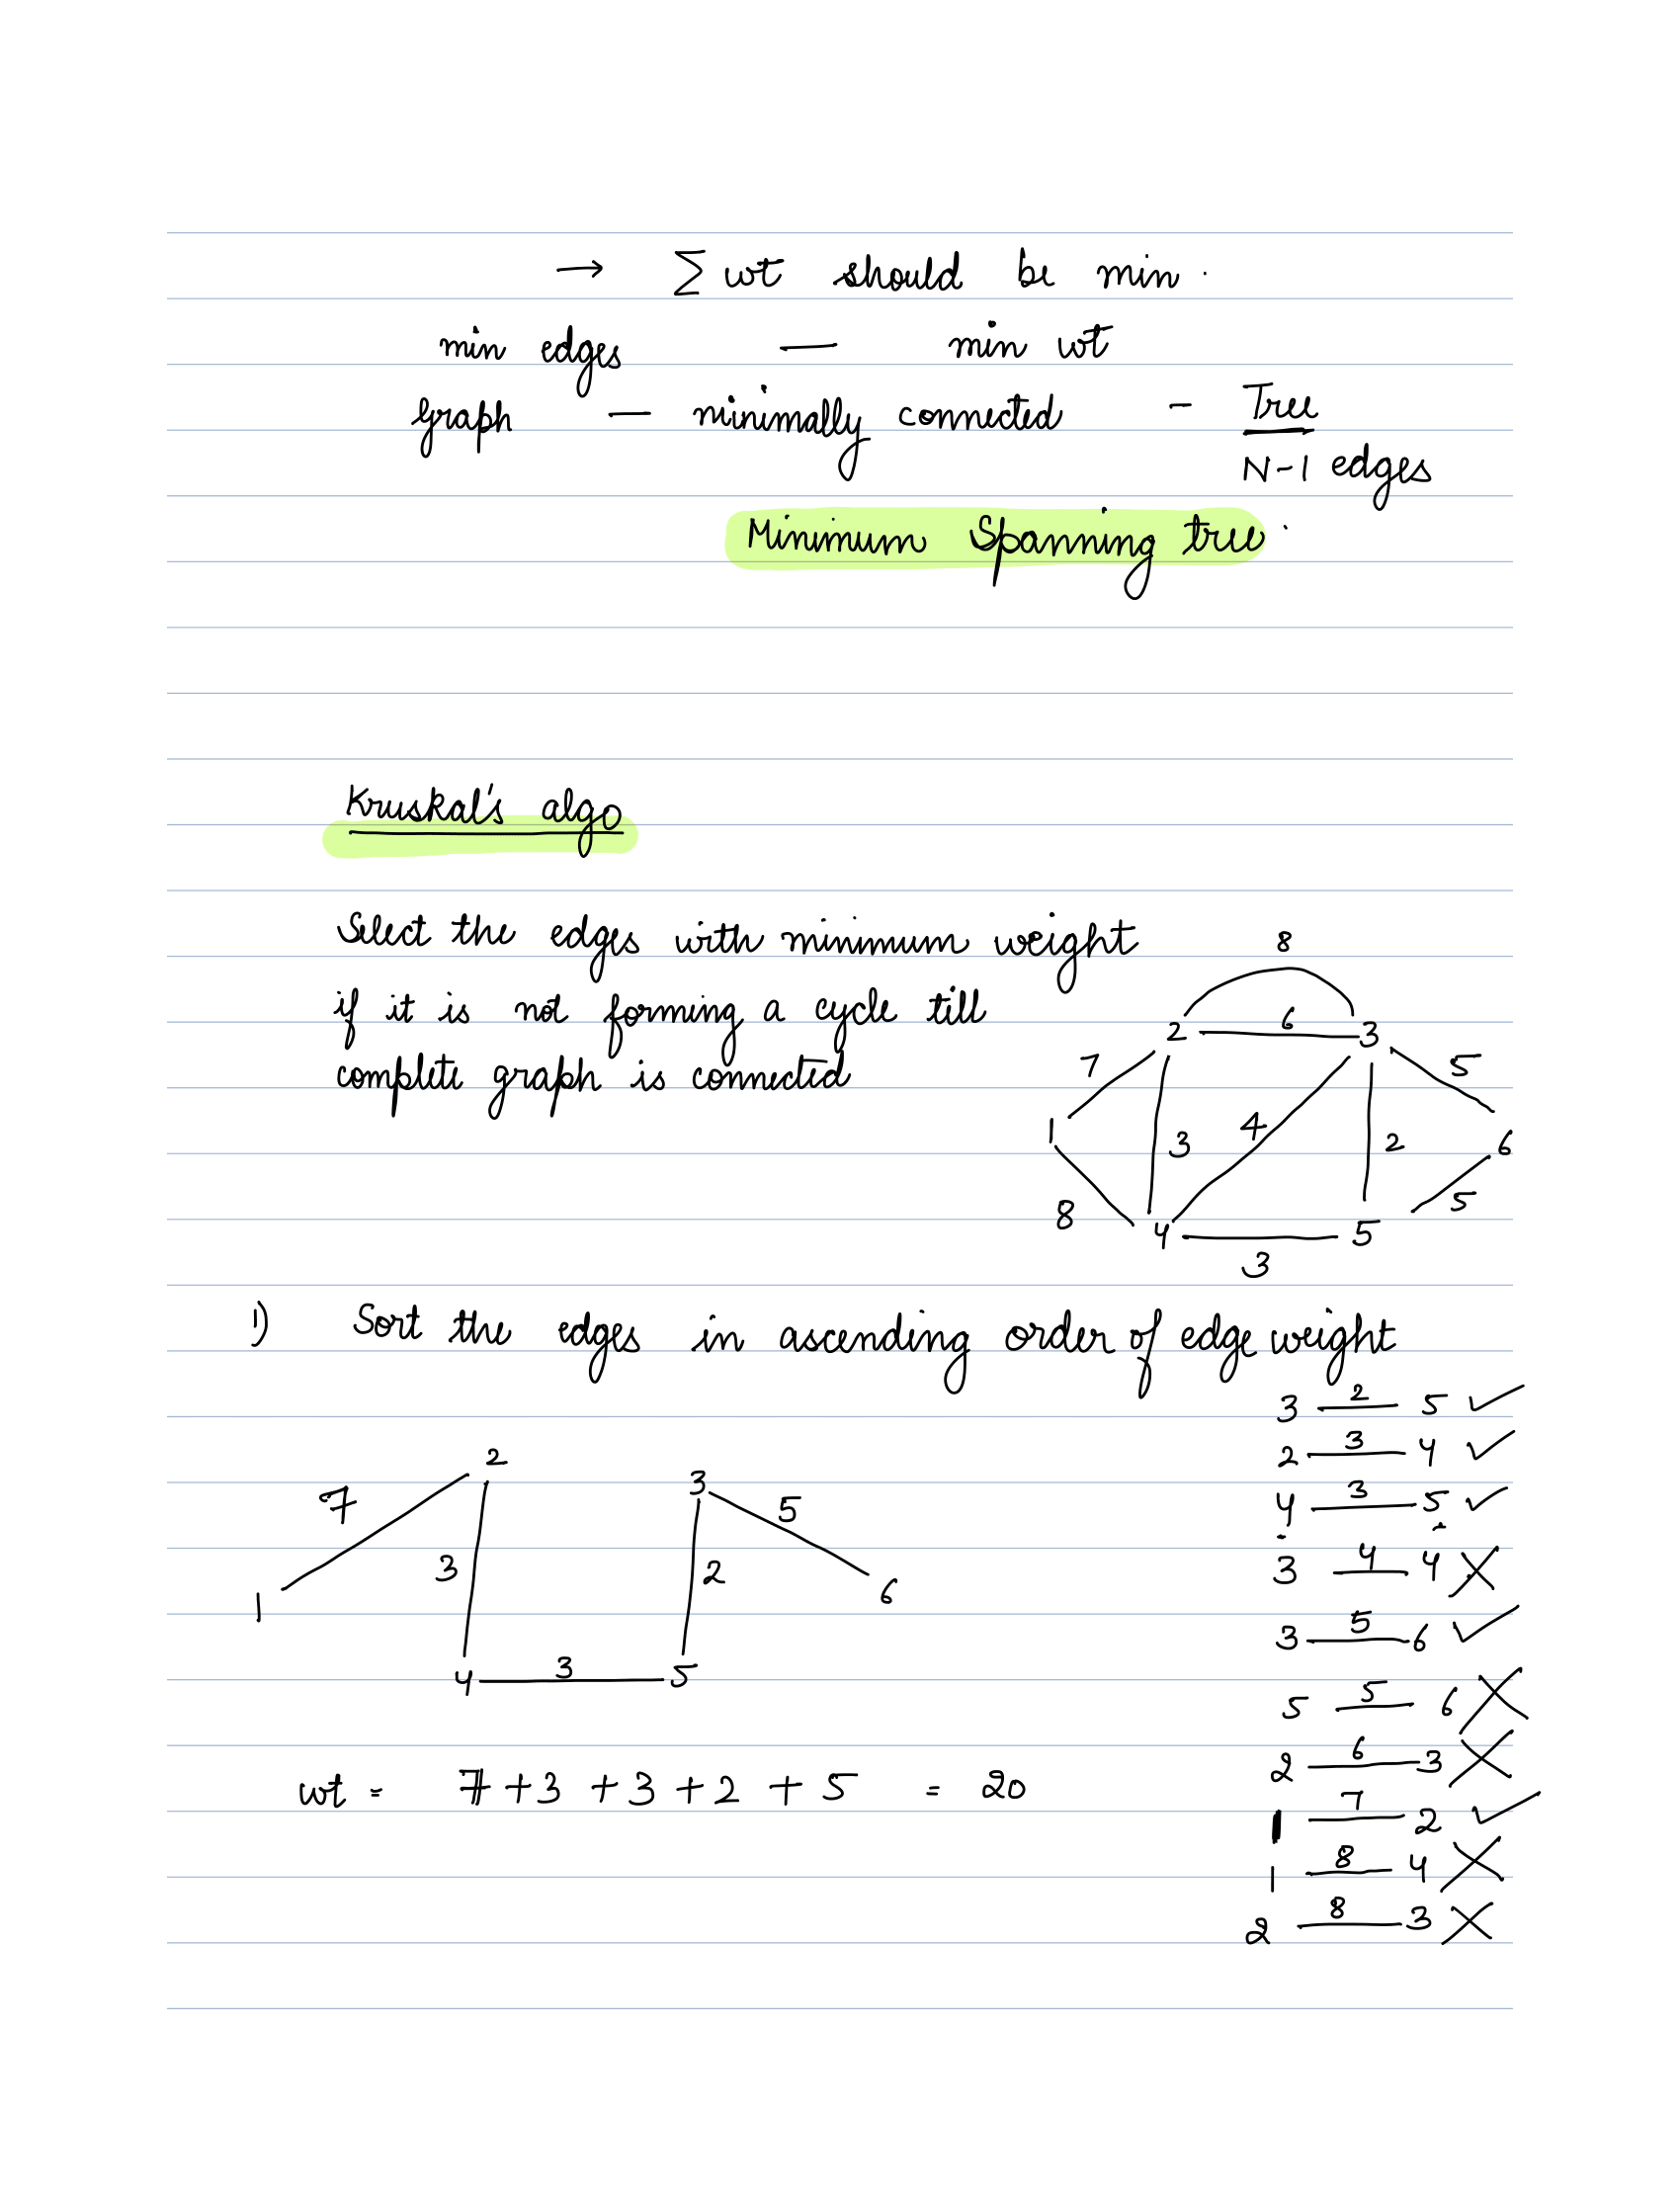 → ∑ wt should be min.
min edges — min wt
graph — minimally connected - Tree
N-1 edges
Minimum Spanning tree.
Kruskal's algo
Select the edges with minimum weight
if it is not forming a cycle till
complete graph is connected
8
2 6 3
7 5
1 3 4 2 6
8 5
4 5
3
1) Sort the edges in ascending order of edge weight
3 2 5 ✓
2 3 4 ✓
4 3 5 ✓
3 4 4 ✗
3 5 6 ✓
5 5 6 ✗
2 6 3 ✗
1 7 2 ✓
1 8 4 ✗
2 8 3 ✗
2
7 3 5
3 2
1 6
4 3 5
wt = 7 + 3 + 3 + 2 + 5 = 20